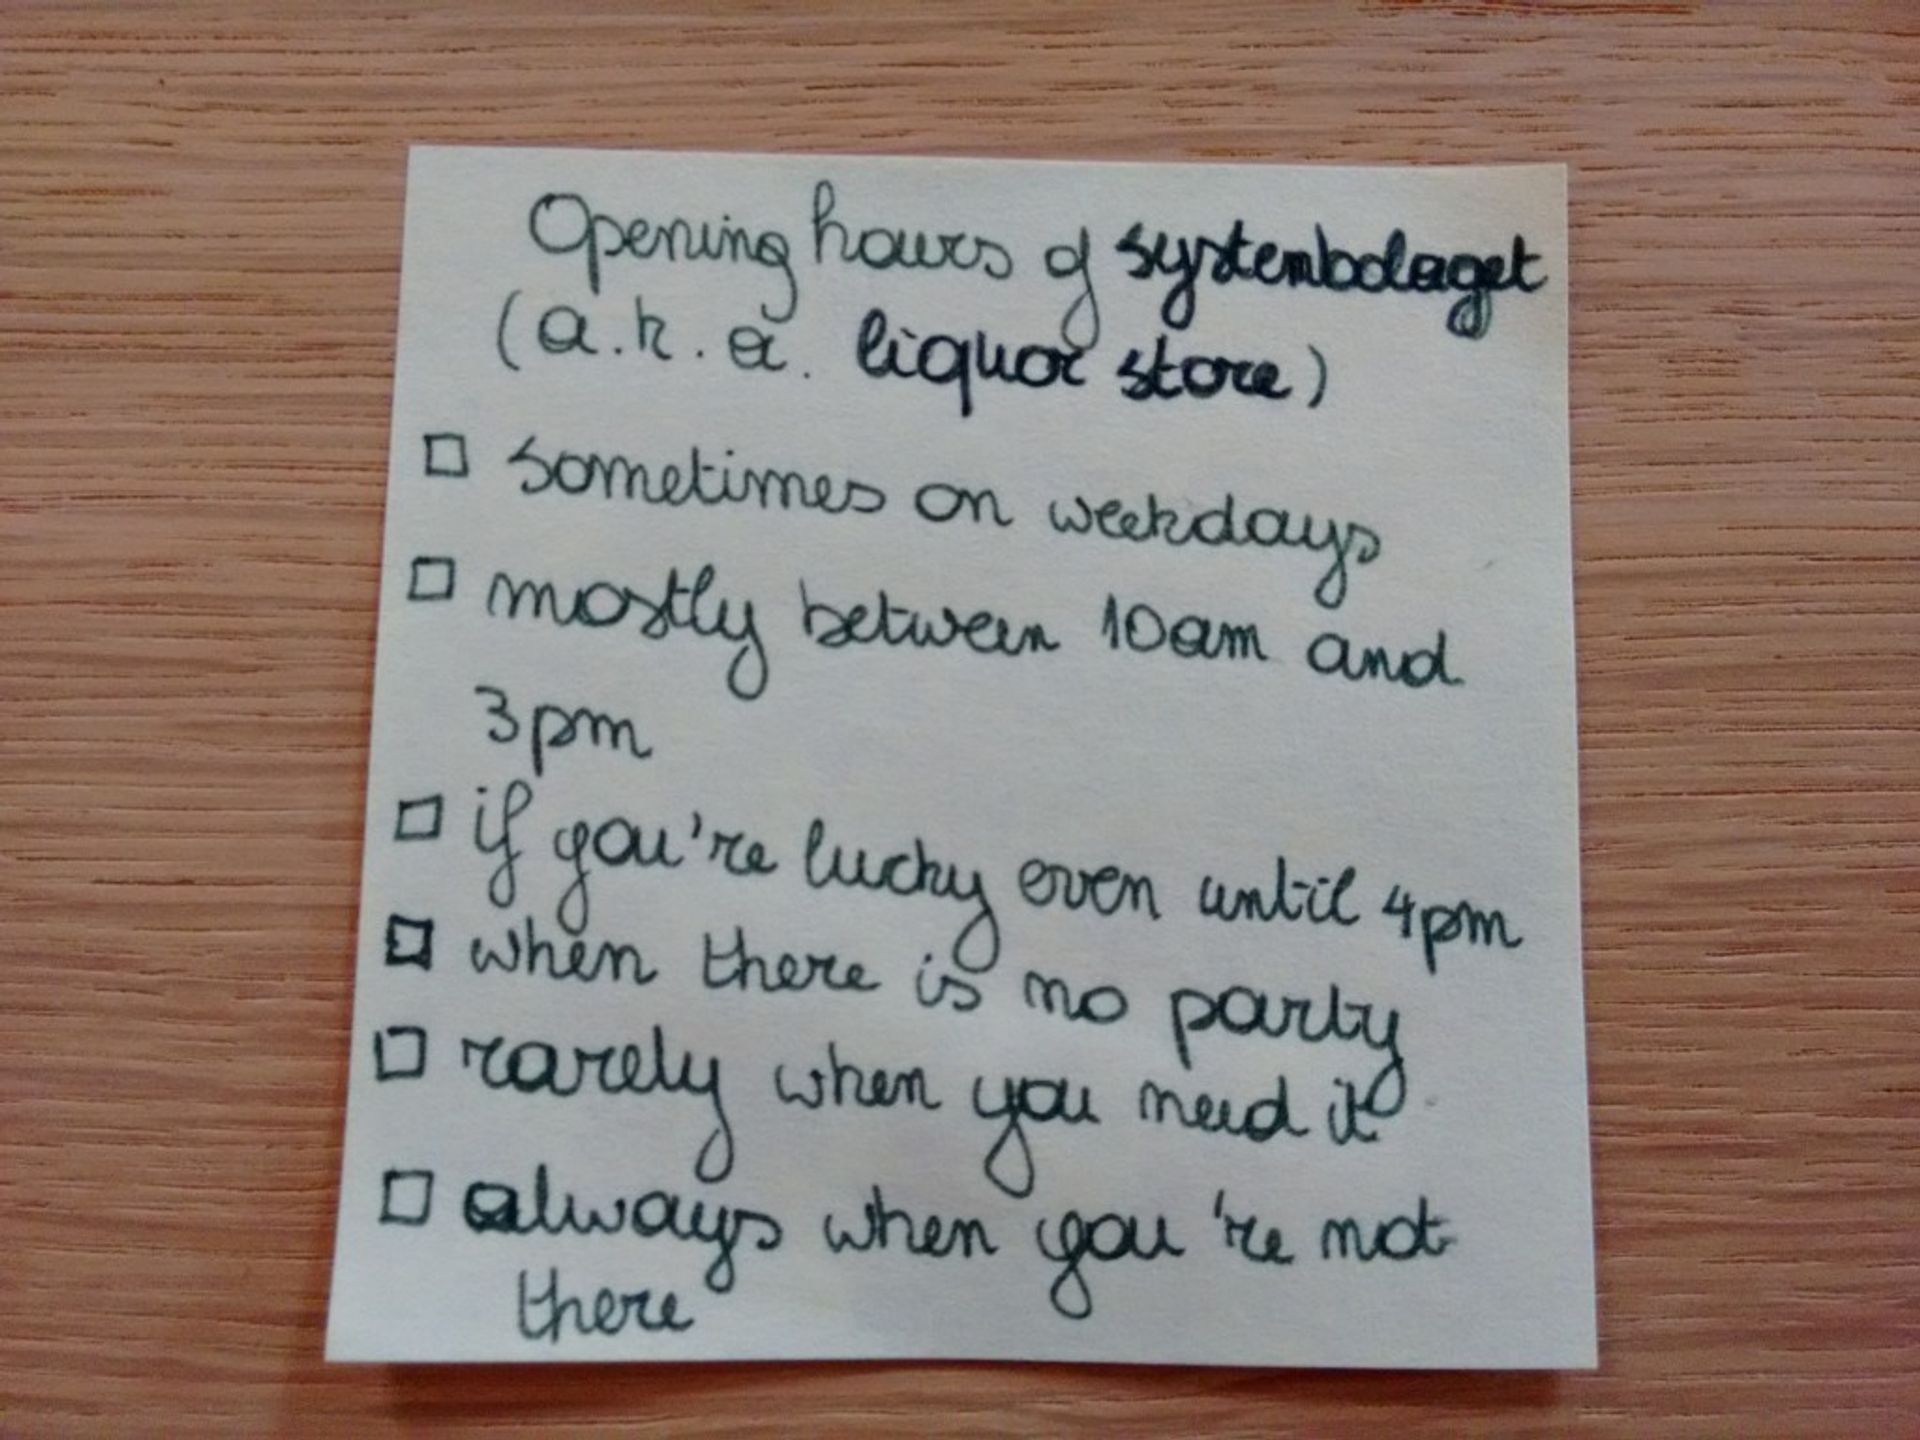 Opening hours of systembolaget
(a.k.a. liquor store)
□ sometimes on weekdays
□ mostly between 10am and
3pm
□ if you're lucky even until 4pm
□ when there is no party
□ rarely when you need it
□ always when you're not
there